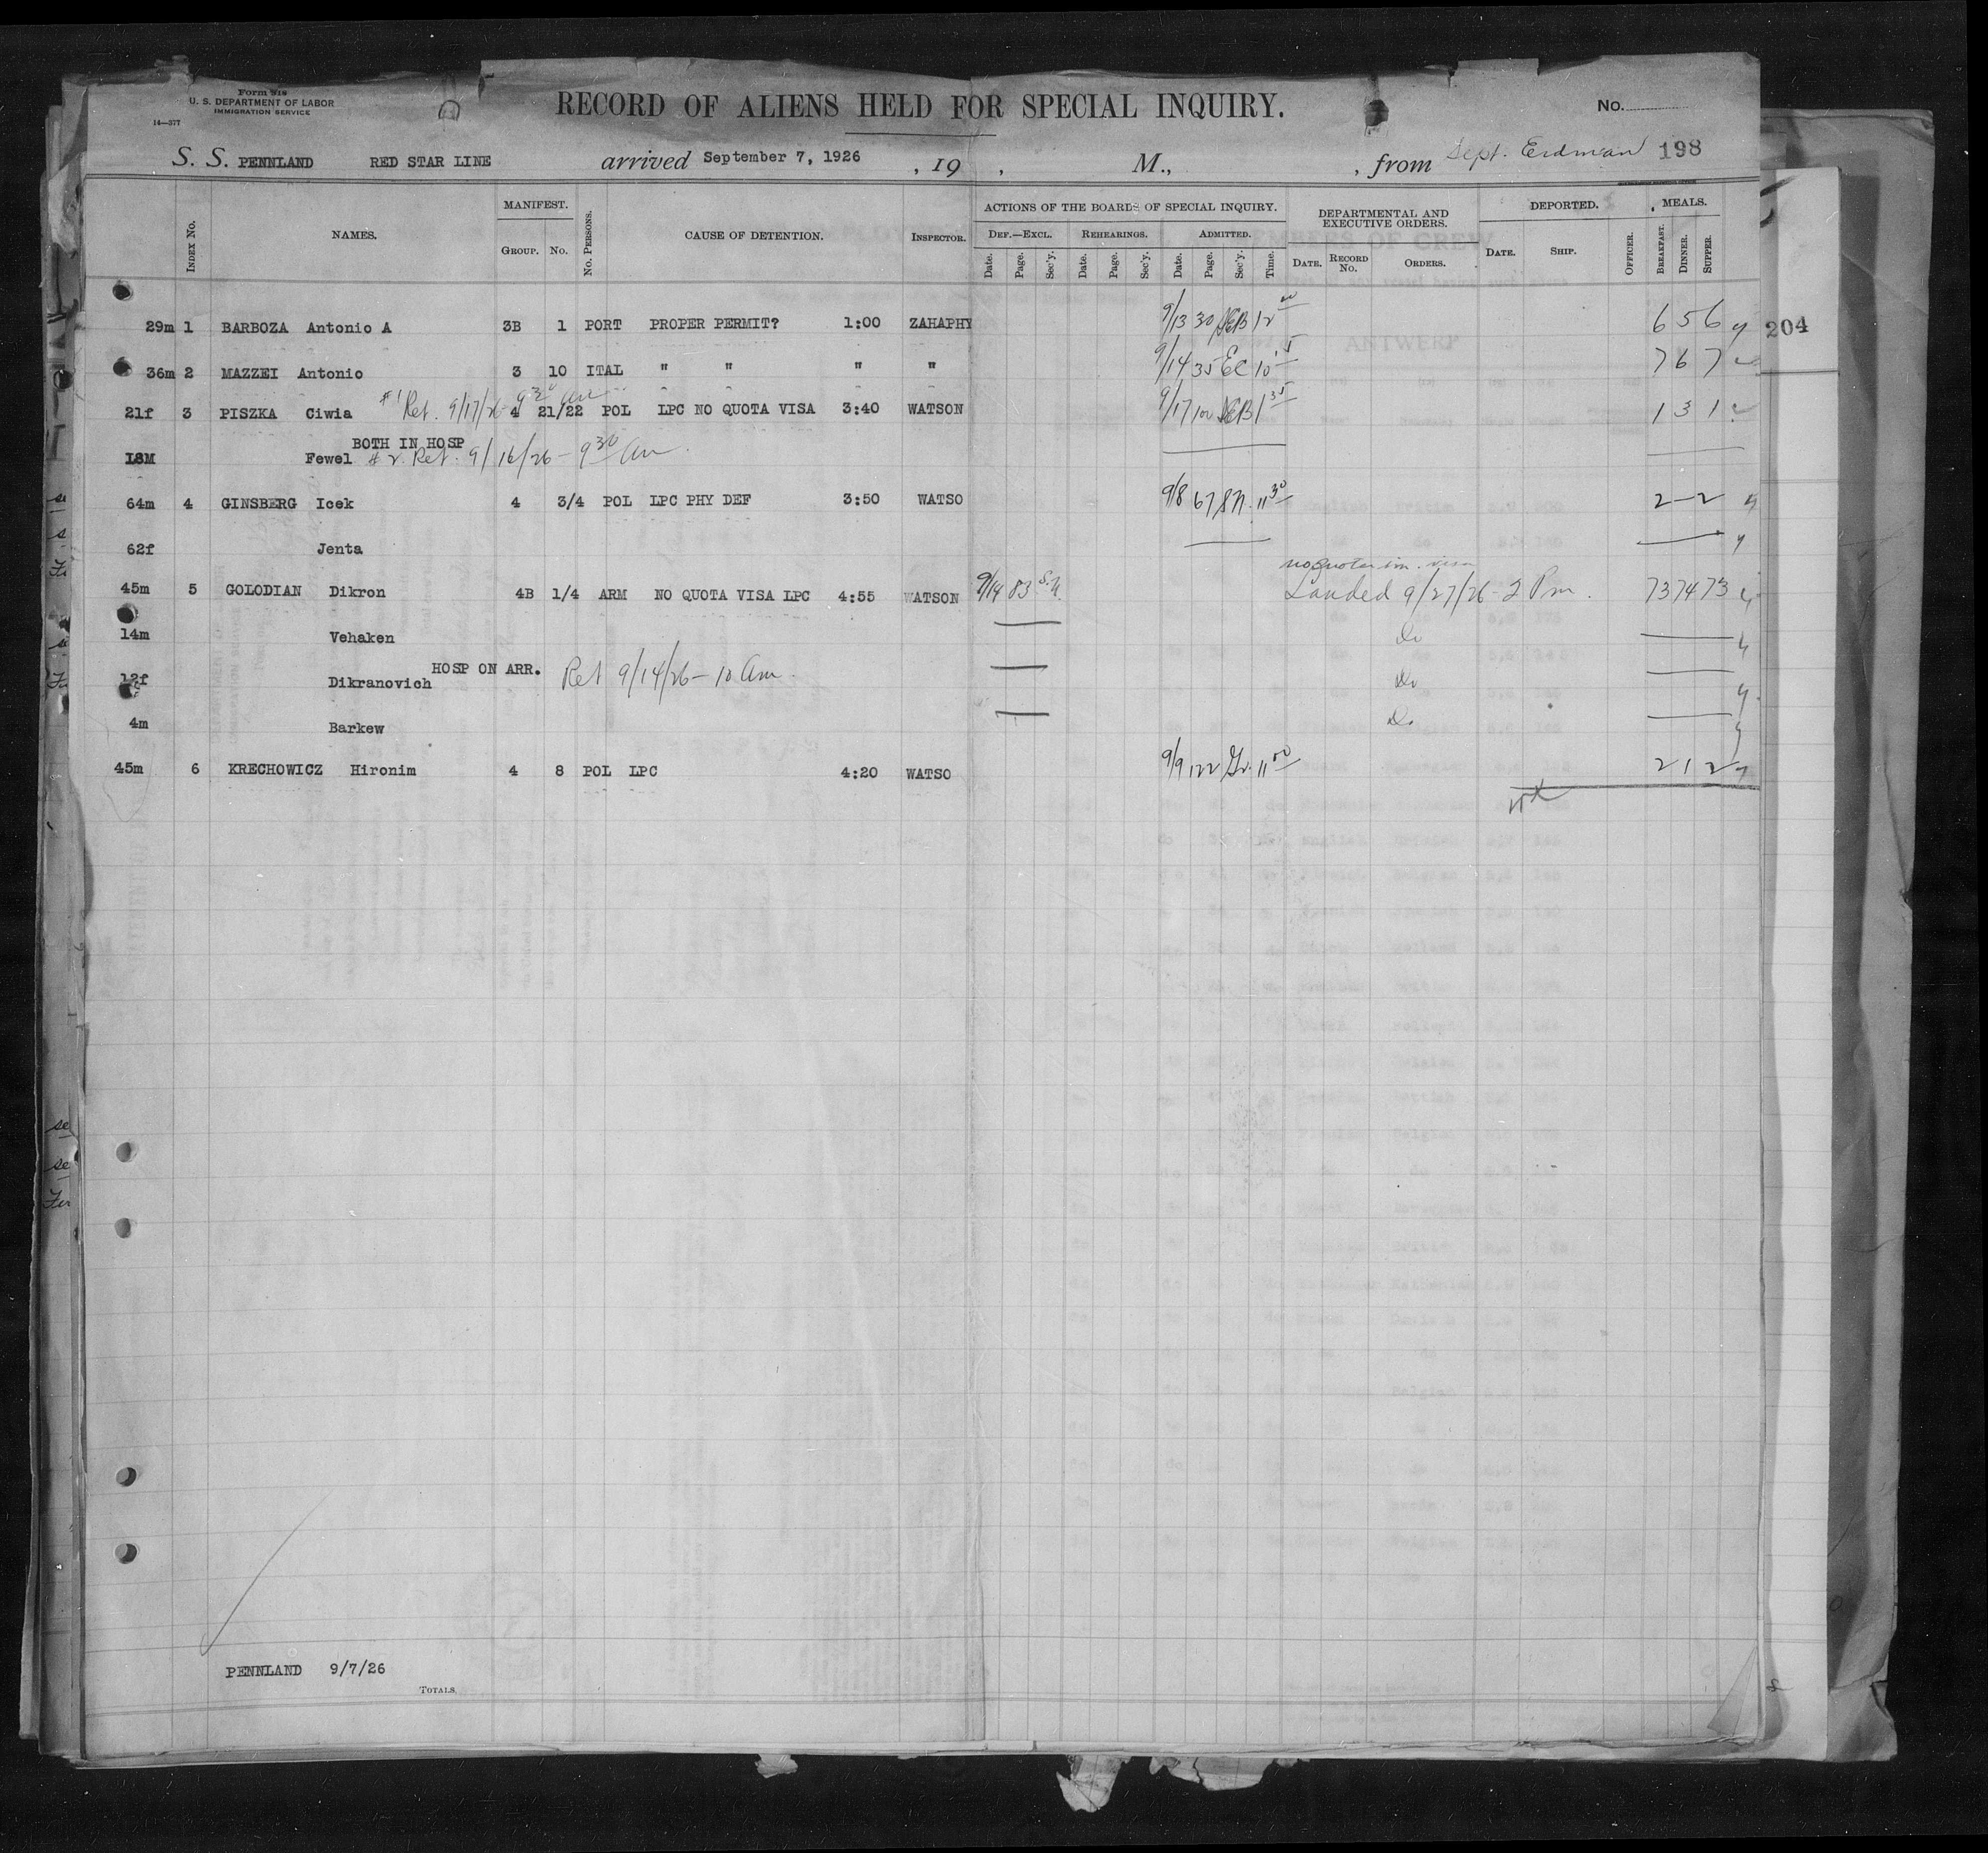 Form 918
U. S. DEPARTMENT OF LABOR
IMMIGRATION SERVICE
14—377
RECORD OF ALIENS HELD FOR SPECIAL INQUIRY.
No.
S. S. PENNLAND RED STAR LINE arrived September 7, 1926 , 19 , M., , from Sept. Erdman 198
INDEX No. NAMES. MANIFEST. GROUP. No. No. PERSONS. CAUSE OF DETENTION. INSPECTOR. ACTIONS OF THE BOARDS OF SPECIAL INQUIRY. DEF.—EXCL. Date. Page. Sec'y. REHEARINGS. Date. Page. Sec'y. ADMITTED. Date. Page. Sec'y. Time. DEPARTMENTAL AND EXECUTIVE ORDERS. DATE. RECORD No. ORDERS. DEPORTED. DATE. SHIP. OFFICER. MEALS. BREAKFAST. DINNER. SUPPER.
29m 1 BARBOZA Antonio A 3B 1 PORT PROPER PERMIT? 1:00 ZAHAPHY 9/13 30 12 00 6 5 6
204
36m 2 MAZZEI Antonio 3 10 ITAL " " " " 9/14 35 EC 10 15 7 6 7
#1 Ret. 9/17/26 9 30 am
21f 3 PISZKA Ciwia 4 21/22 POL LPC NO QUOTA VISA 3:40 WATSON 9/17 1 35 1 3 1
BOTH IN HOSP
18M Fewel #2. Ret. 9/16/26 - 9 30 am.
64m 4 GINSBERG Icek 4 3/4 POL LPC PHY DEF 3:50 WATSO 9/8 67 SN. 11 30 2 – 2
62f Jenta
no quota im. visa
45m 5 GOLODIAN Dikron 4B 1/4 ARM NO QUOTA VISA LPC 4:55 WATSON 9/14 83 S.N. Landed 9/27/26 2 Pm. 73 74 73
14m Vehaken Do
HOSP ON ARR. Ret 9/14/26 – 10 am.
12f Dikranovich Do
4m Barkew Do
45m 6 KRECHOWICZ Hironim 4 8 POL LPC 4:20 WATSO 9/9 122 Gr. 11 50 2 1 2
PENNLAND 9/7/26
TOTALS